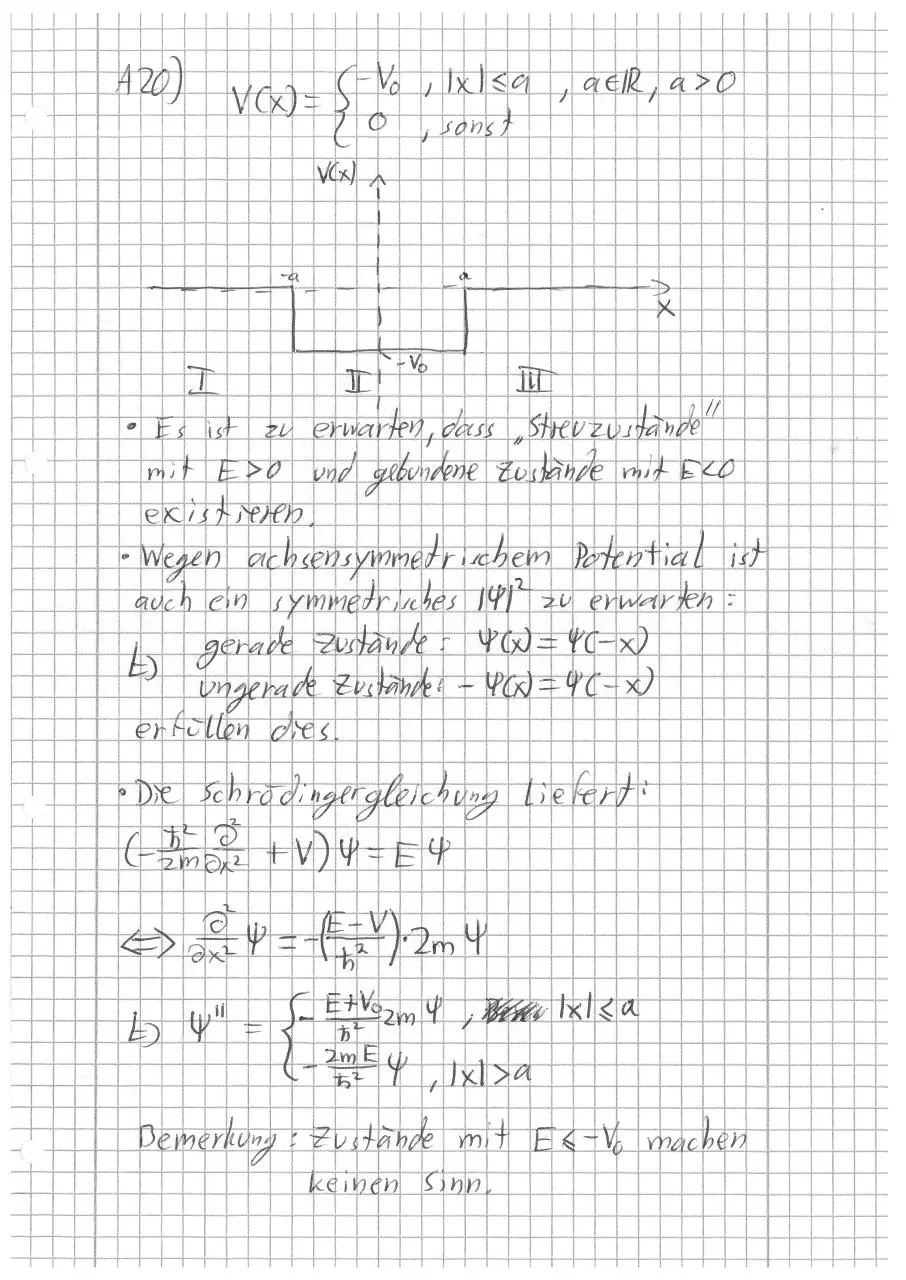 A20) V(x) = { -V₀ , |x| ≤ a , a∈ℝ, a > 0
0 , sonst
V(x)
-a a
x
-V₀
I II III
• Es ist zu erwarten, dass „Streuzustände"
mit E>0 und gebundene Zustände mit E<0
existieren.
• Wegen achsensymmetrischem Potential ist
auch ein symmetrisches |Ψ|² zu erwarten:
↳ gerade Zustände: Ψ(x) = Ψ(-x)
ungerade Zustände: -Ψ(x) = Ψ(-x)
erfüllen dies.
• Die Schrödingergleichung liefert:
(-ħ²/2m ∂²/∂x² + V) Ψ = E Ψ
⟺ ∂²/∂x² Ψ = -((E-V)/ħ²)·2m Ψ
↳ Ψ'' = { -(E+V₀)/ħ² 2m Ψ , |x| ≤ a
-2mE/ħ² Ψ , |x| > a
Bemerkung: Zustände mit E ≤ -V₀ machen
keinen Sinn.